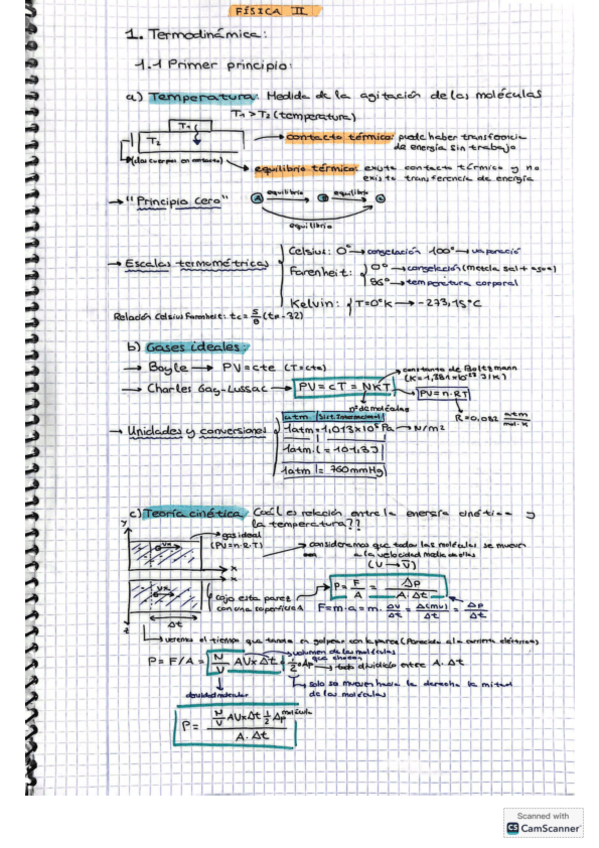 FÍSICA II
1. Termodinámica:
1.1 Primer principio:
a) Temperatura: Medida de la agitación de las moléculas
T₁ > T₂ (temperatura)
T₁
T₂
contacto térmico: puede haber transferencia
de energía sin trabajo
(dos cuerpos en contacto)
equilibrio térmico: existe contacto térmico y no
existe transferencia de energía
→ "Principio Cero"
A equilibrio B equilibrio C
equilibrio
→ Escalas termométricas
Celsius: 0° → congelación 100° →
Farenheit: 0° → congelación (mezcla sal + agua)
→ temperatura corporal
Kelvin: T=0°K → -273,15°C
Relación Celsius Farenheit: tc = (tF - 32)
b) Gases ideales:
→ Boyle → PV = cte (T=cte)
→ Charles Gay-Lussac → PV = cT = NKT
constante de Boltzmann
PV = n·RT
nº de moléculas
R = 0,082 atm
→ Unidades y conversiones
atm. Sist Internacional
1atm = 1,013×10⁵ Pa → N/m²
1atm·l = 101,3J
1atm = 760mmHg
c) Teoría cinética: ¿Cuál es relación entre la energía cinética y
la temperatura??
gas ideal
(PV=n·R·T)
consideramos que todas las moléculas se mueven
a la velocidad media de ellas
cojo esta pared
con una superficie A
P = F/A = Δp/(A·Δt)
F = m·a = m·Δv/Δt = Δ(mv)/Δt = Δp/Δt
Δt
veremos el tiempo que tarda en golpear con la pared (Parecido a la corriente eléctrica)
volumen de las moléculas
que chocan
P = F/A = N/V AVxΔt · ½ Δp → todo dividido entre A·Δt
solo se mueven hacia la derecha la mitad
de las moléculas
densidad molecular
P = (N/V AVxΔt ½ Δp molécula)/(A·Δt)
Scanned with
CS CamScanner